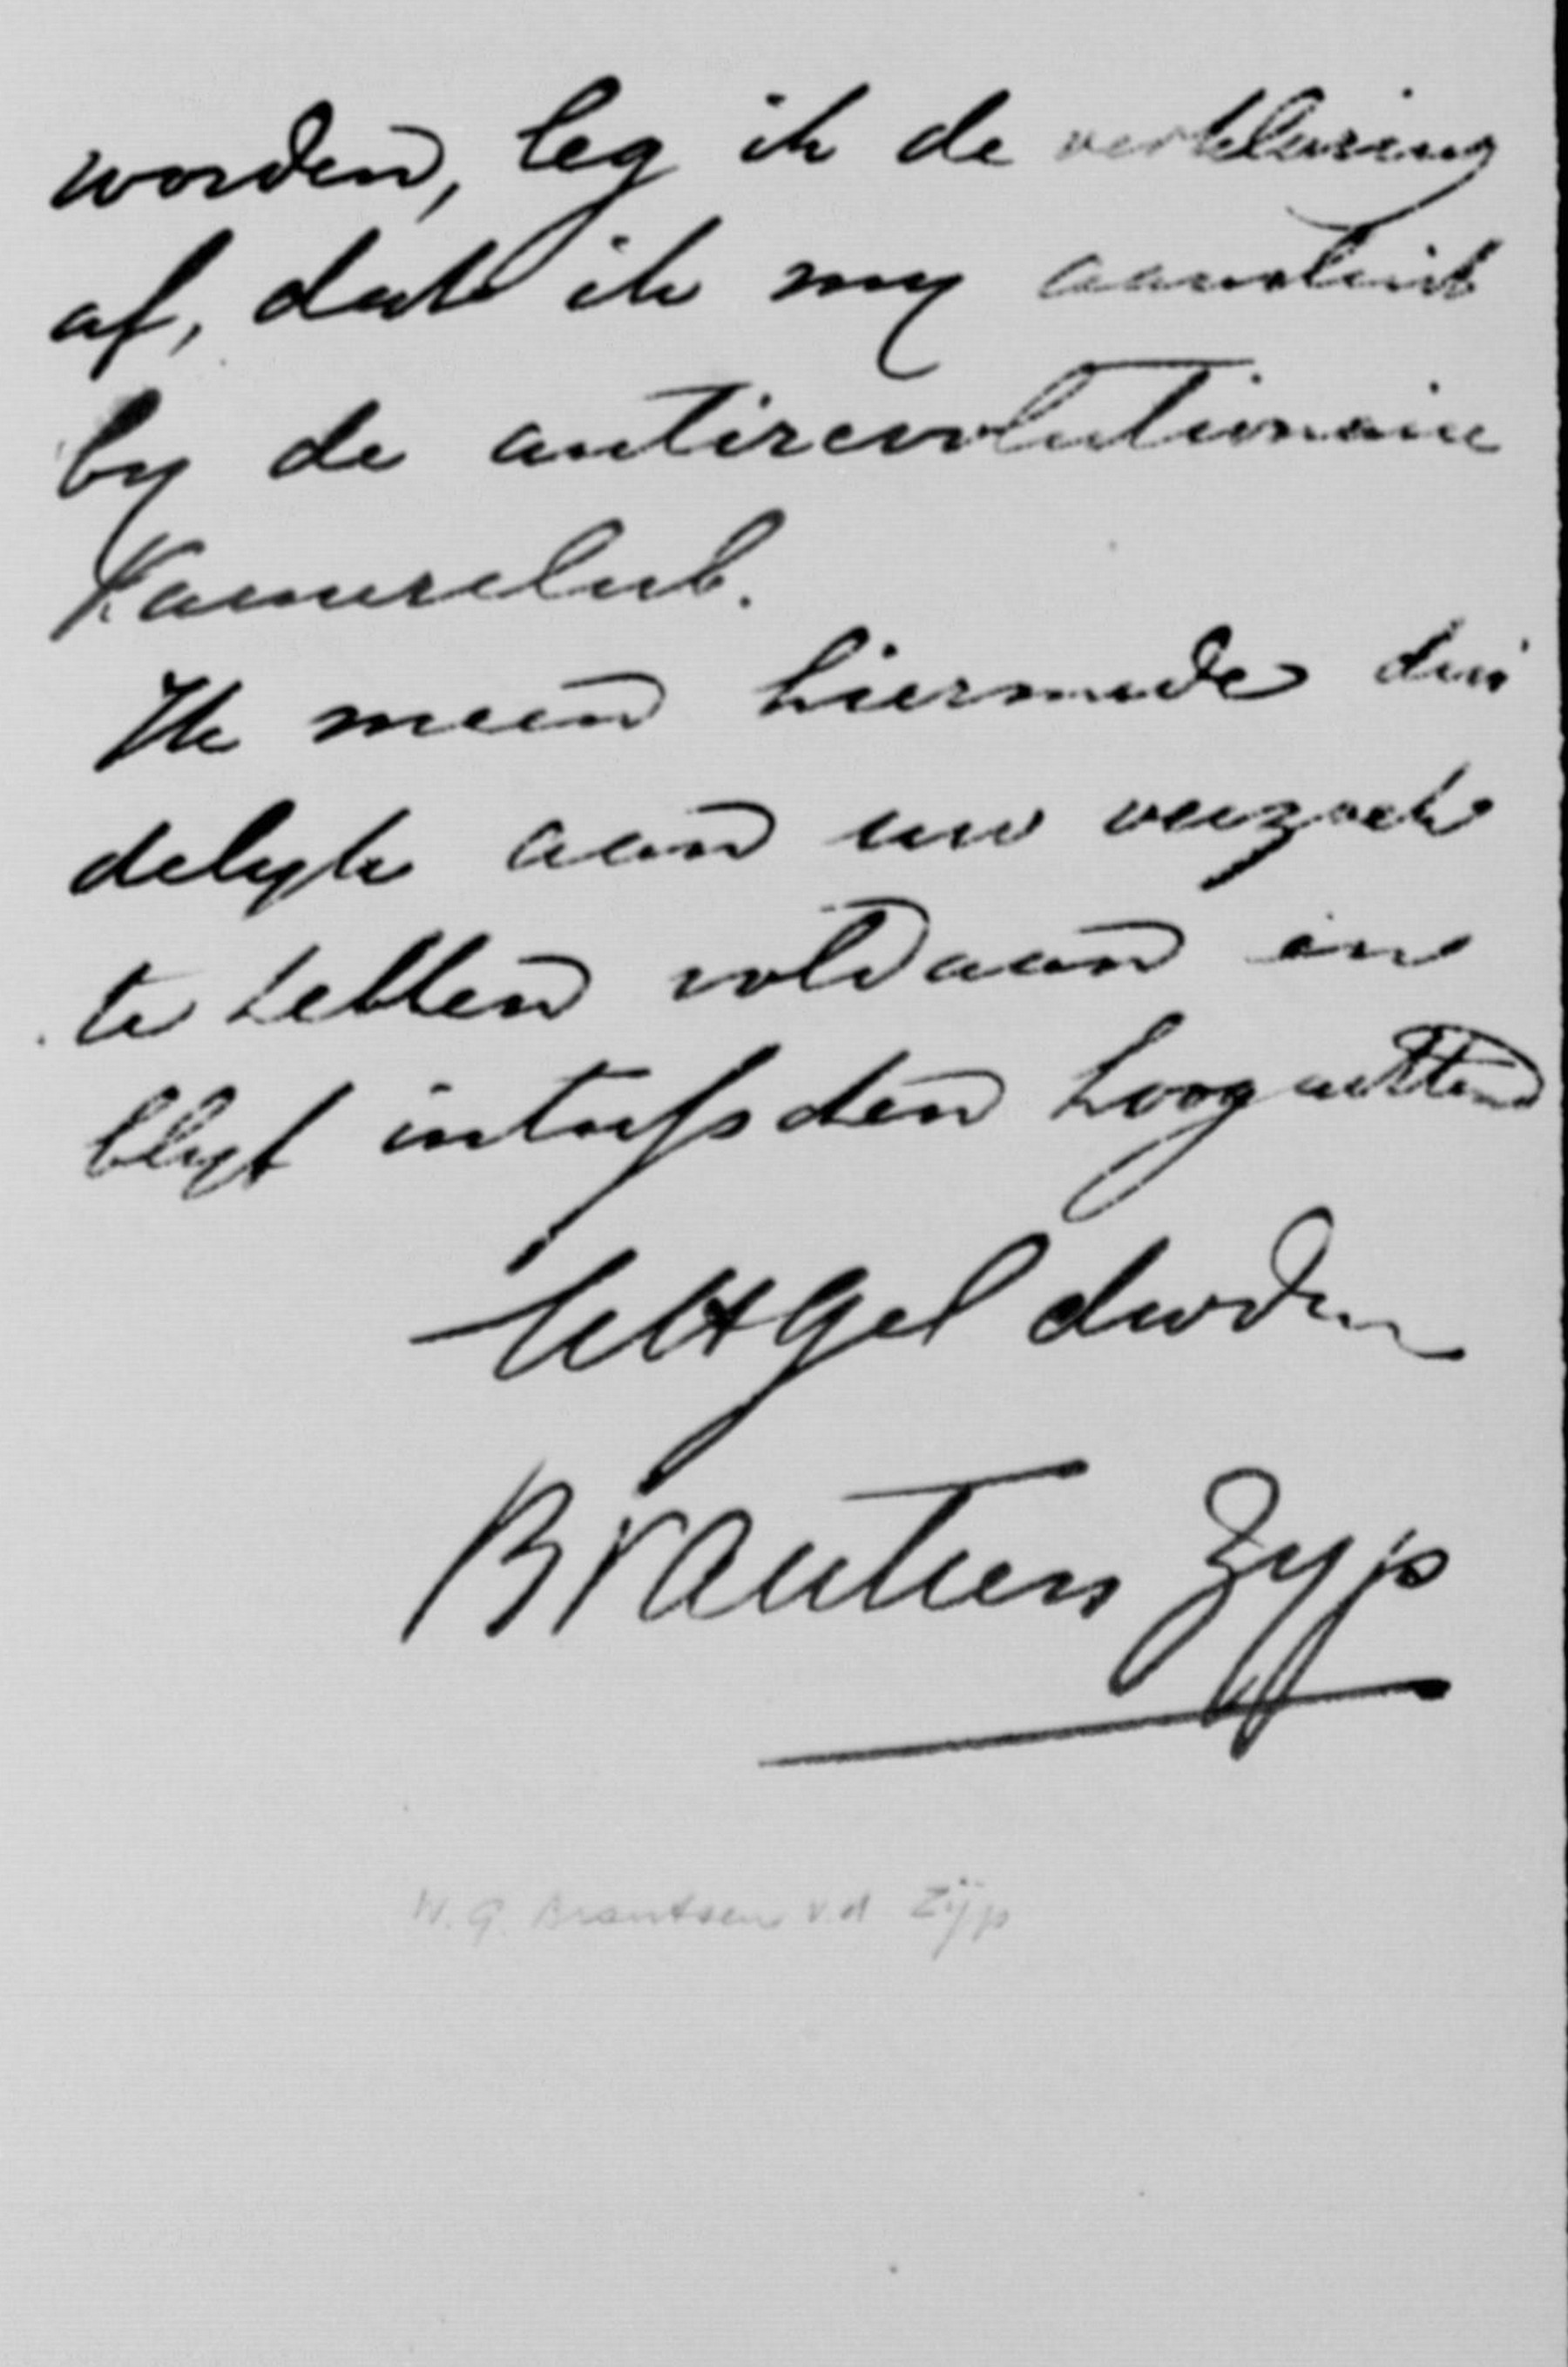 worden, leg ik de verklaring
af, dat ik my aansluit
by de antirevolutionaire
Kamerclub.
Ik meen hiermede dui
delyk aan uw verzoek
te hebben voldaan en
blyf intusschen hoogachtend
UHGel dwdn
Brantsen Zyp
W. G. Brantsen v.d Zijp